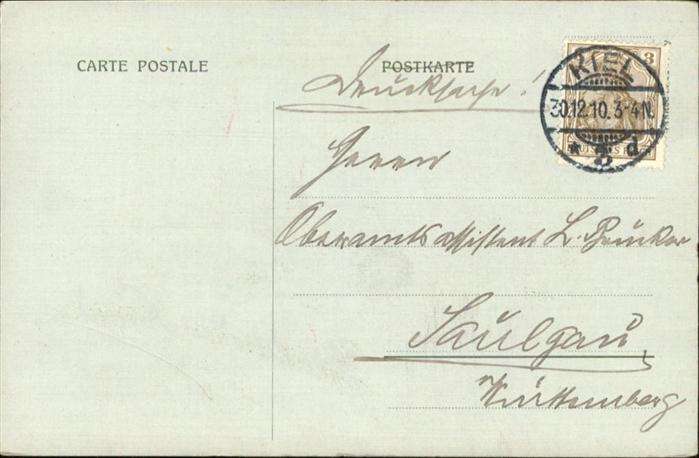 CARTE POSTALE
POSTKARTE
3
Drucksache!
KIEL
30.12.10. 3-4N.
* 5 d
Herrn
Oberamtsassistent L. Brucker
Saulgau,
Württemberg